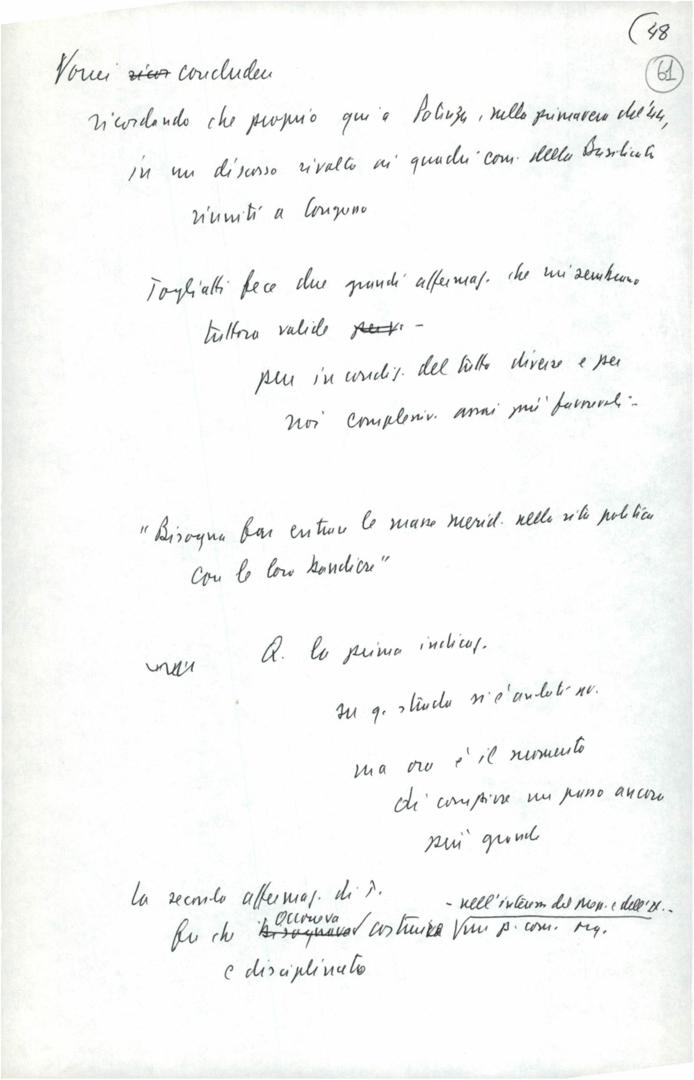 (48
61
Vorrei ricor concludere
ricordando che proprio qui a Potenza, nella primavera del '44,
in un discorso rivolto ai quadri com. della Basilicata
riuniti a
Togliatti fece due grandi affermaz. che mi sembrano
tuttora valide -
pur in condiz. del tutto diverse e per
noi complessiv. assai più favorevoli -
"Bisogna far entrare le masse merid. nella vita politica
con le loro bandiere"
Q. la prima indicaz.
su q. strada si è andati av.
ma ora è il momento
di compiere un passo ancora
più grande
La seconda affermaz. di T.
- nell'interesse del Mezz. e dell'It. -
occorreva
fu che bisognava costruire un p. com. org.
e disciplinato